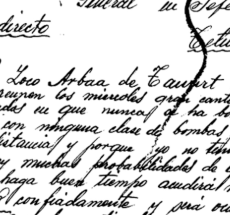 General en Jefe
directo
Zoco Arbaa de Taurirt
reunen los miercoles gran cant
en que nunca se ha bo
con ninguna clase de bombas
distancia y porque yo no ten
y muchas probabilidades de
haga buen tiempo acudirá
confiadamente y será